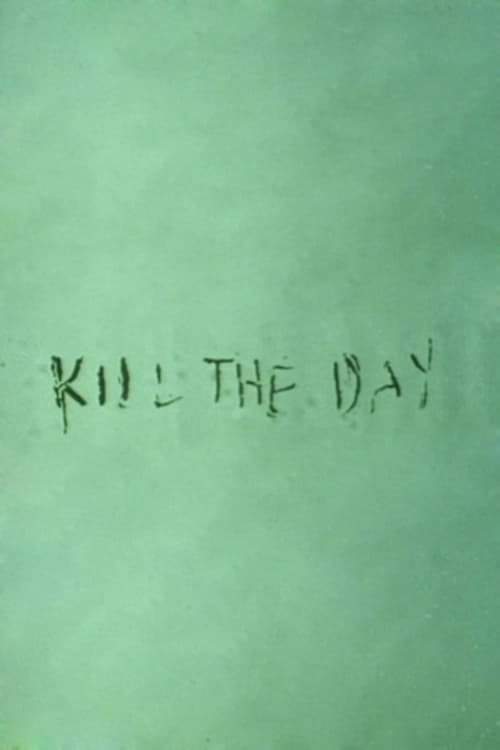 KILL THE DAY